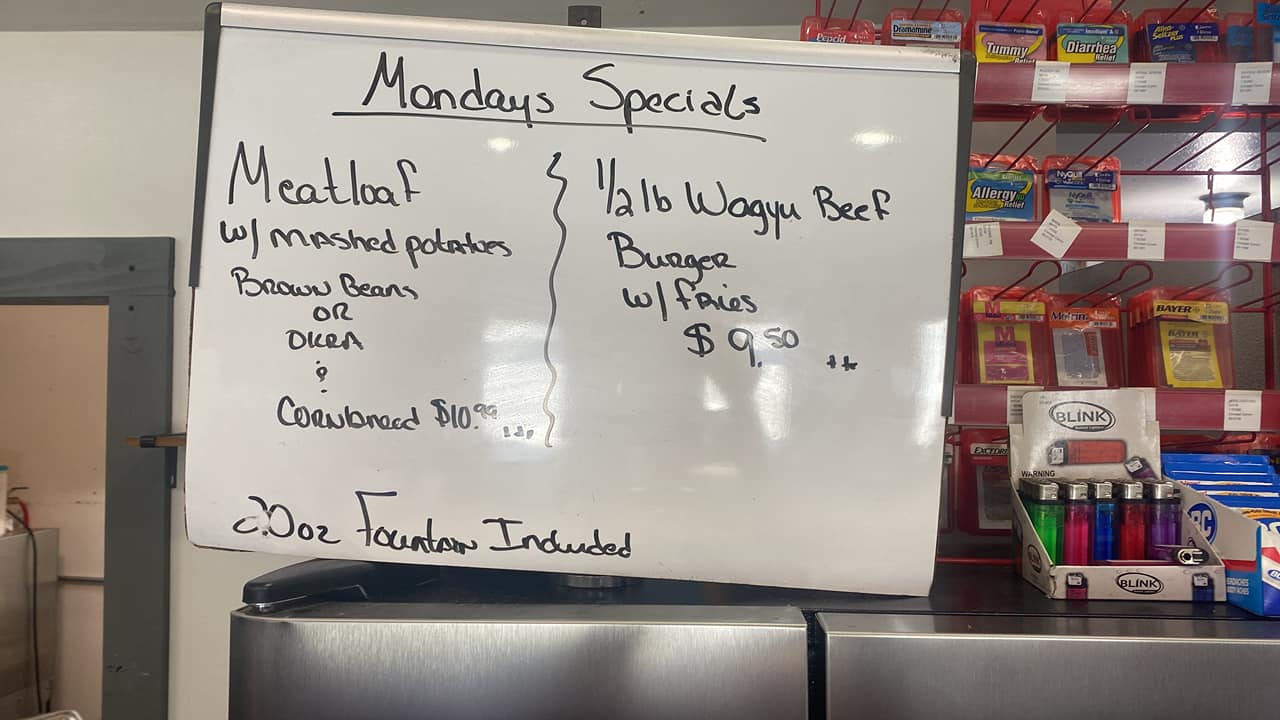 Mondays Specials
Meatloaf
w/ mashed potatoes
Brown Beans
OR
OKRA
&
Cornbread $10.99
1/2 lb Wagyu Beef
Burger
w/ fries
$9.50
20oz Fountain Included
Pepcid
Dramamine
Tummy
Relief
Diarrhea
Relief
Alka-Seltzer
PLUS
Allergy
Relief
NyQuil
Motrin
BAYER
BAYER
EXCEDRIN
BLINK
WARNING
BLINK
BC